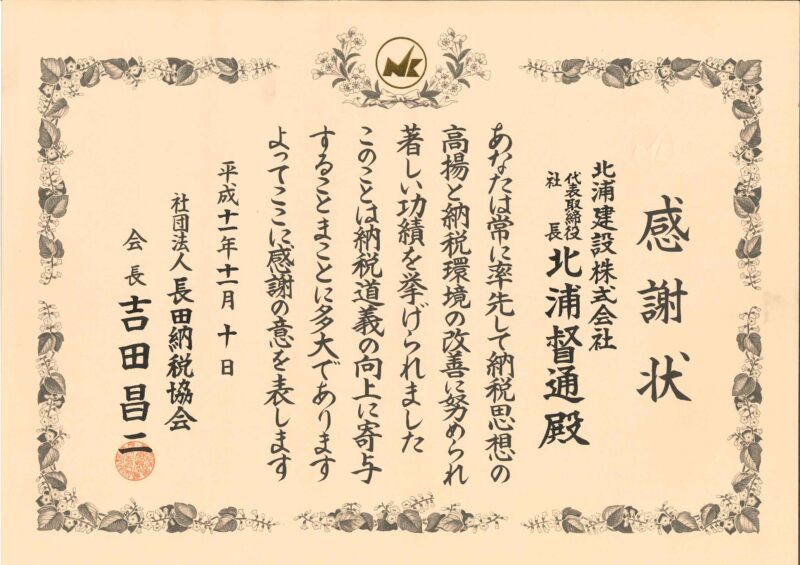 感謝状
北浦建設株式会社
代表取締役
社長 北浦督通殿
あなたは常に率先して納税思想の
高揚と納税環境の改善に努められ
著しい功績を挙げられました
このことは納税道義の向上に寄与
することまことに多大であります
よってここに感謝の意を表します
平成十一年十一月十日
社団法人長田納税協会
会長 吉田昌二